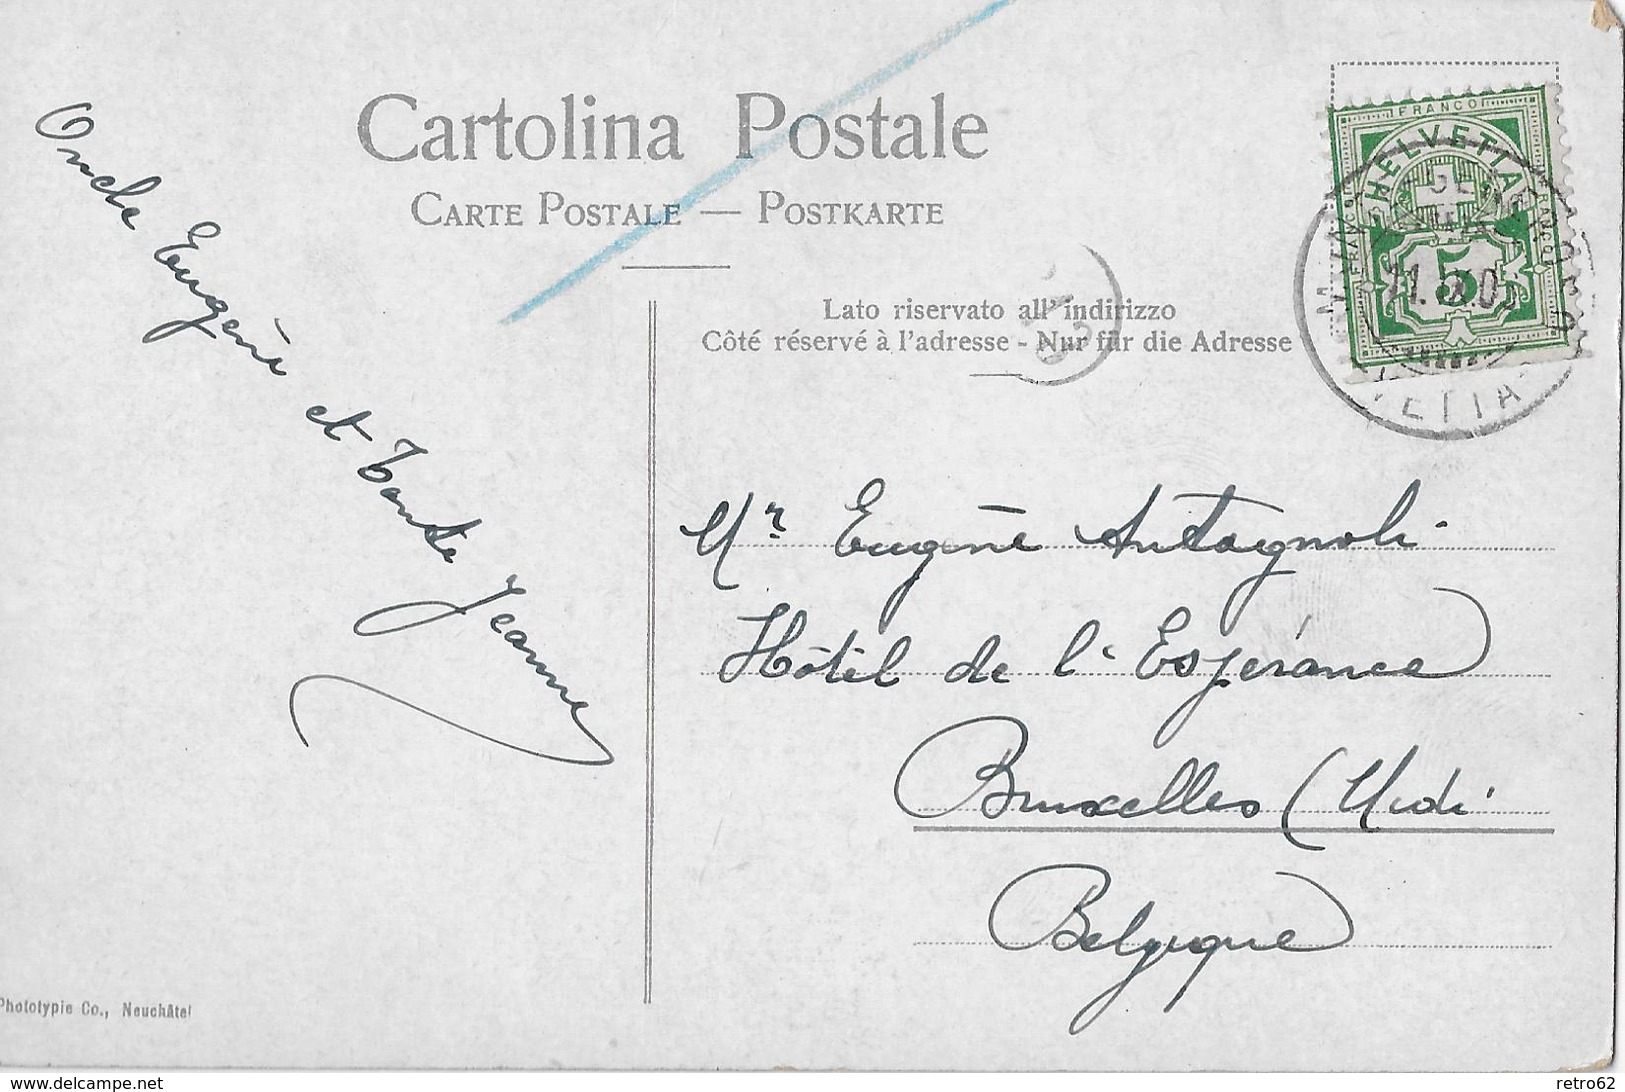 Cartolina Postale
CARTE POSTALE — POSTKARTE
Lato riservato all'indirizzo
Côté réservé à l'adresse - Nur für die Adresse
FRANCO
HELVETIA
FRANCO
5
Oncle Eugène et Tante Jeanne
Mr Eugène Antagnoli
Hôtel de l'Espérance
Bruxelles (Midi
Belgique
Phototypie Co., Neuchâtel
www.delcampe.net
retro62